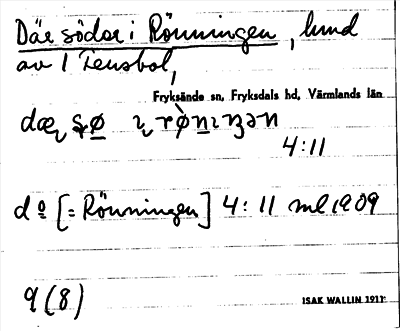 Där söder i Rönningen, lund
av 1 Tensbol,
Fryksände sn, Fryksdals hd, Värmlands län
4:11
d o [= Rönningen] 4:11 ml 1909
9 (8)
ISAK WALLIN 1911